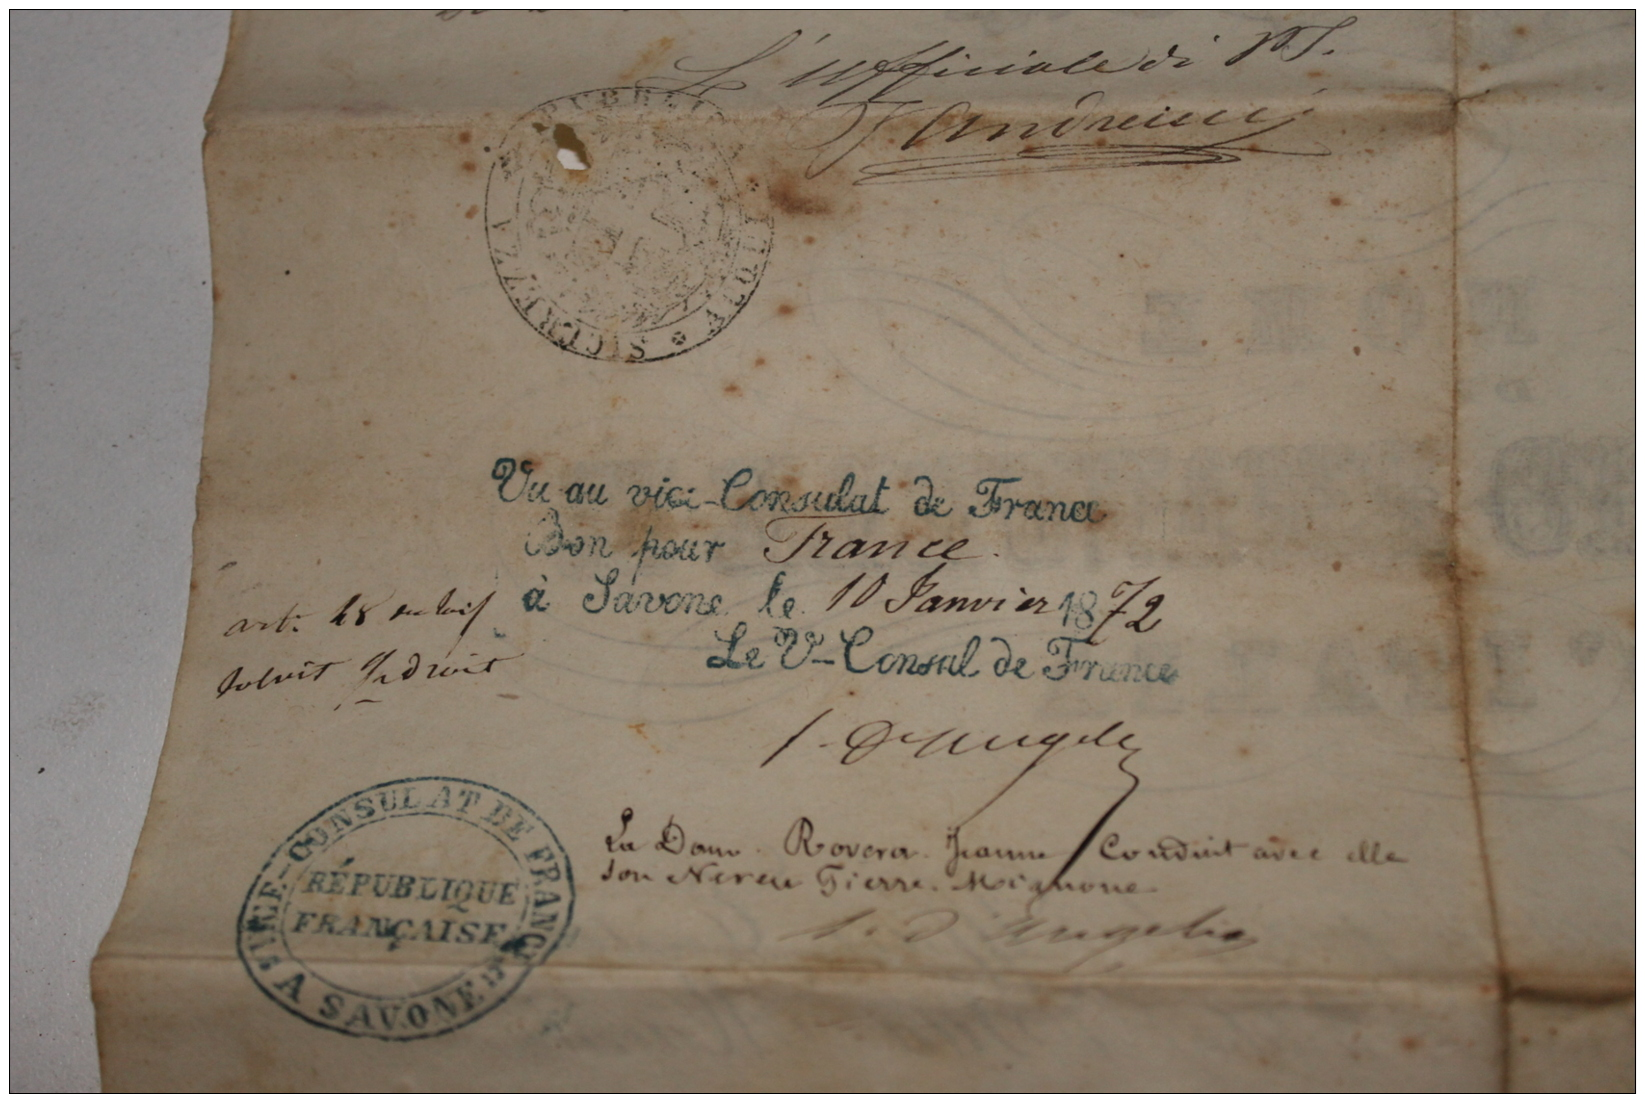 L'uffiziale di P.S.
Andreini
PUBBLICA SICUREZZA
Vu au vice-Consulat de France
Bon pour France.
à Savone le 10 Janvier 1872
Le V-Consul de France
art. 48 du tarif
droit
S. D'Angelis
La Dame Rovera Jeanne Conduit avec elle
son Neveu Pierre Mignone
S. D'Angelis
VICE-CONSULAT DE FRANCE
RÉPUBLIQUE
FRANÇAISE
A SAVONE